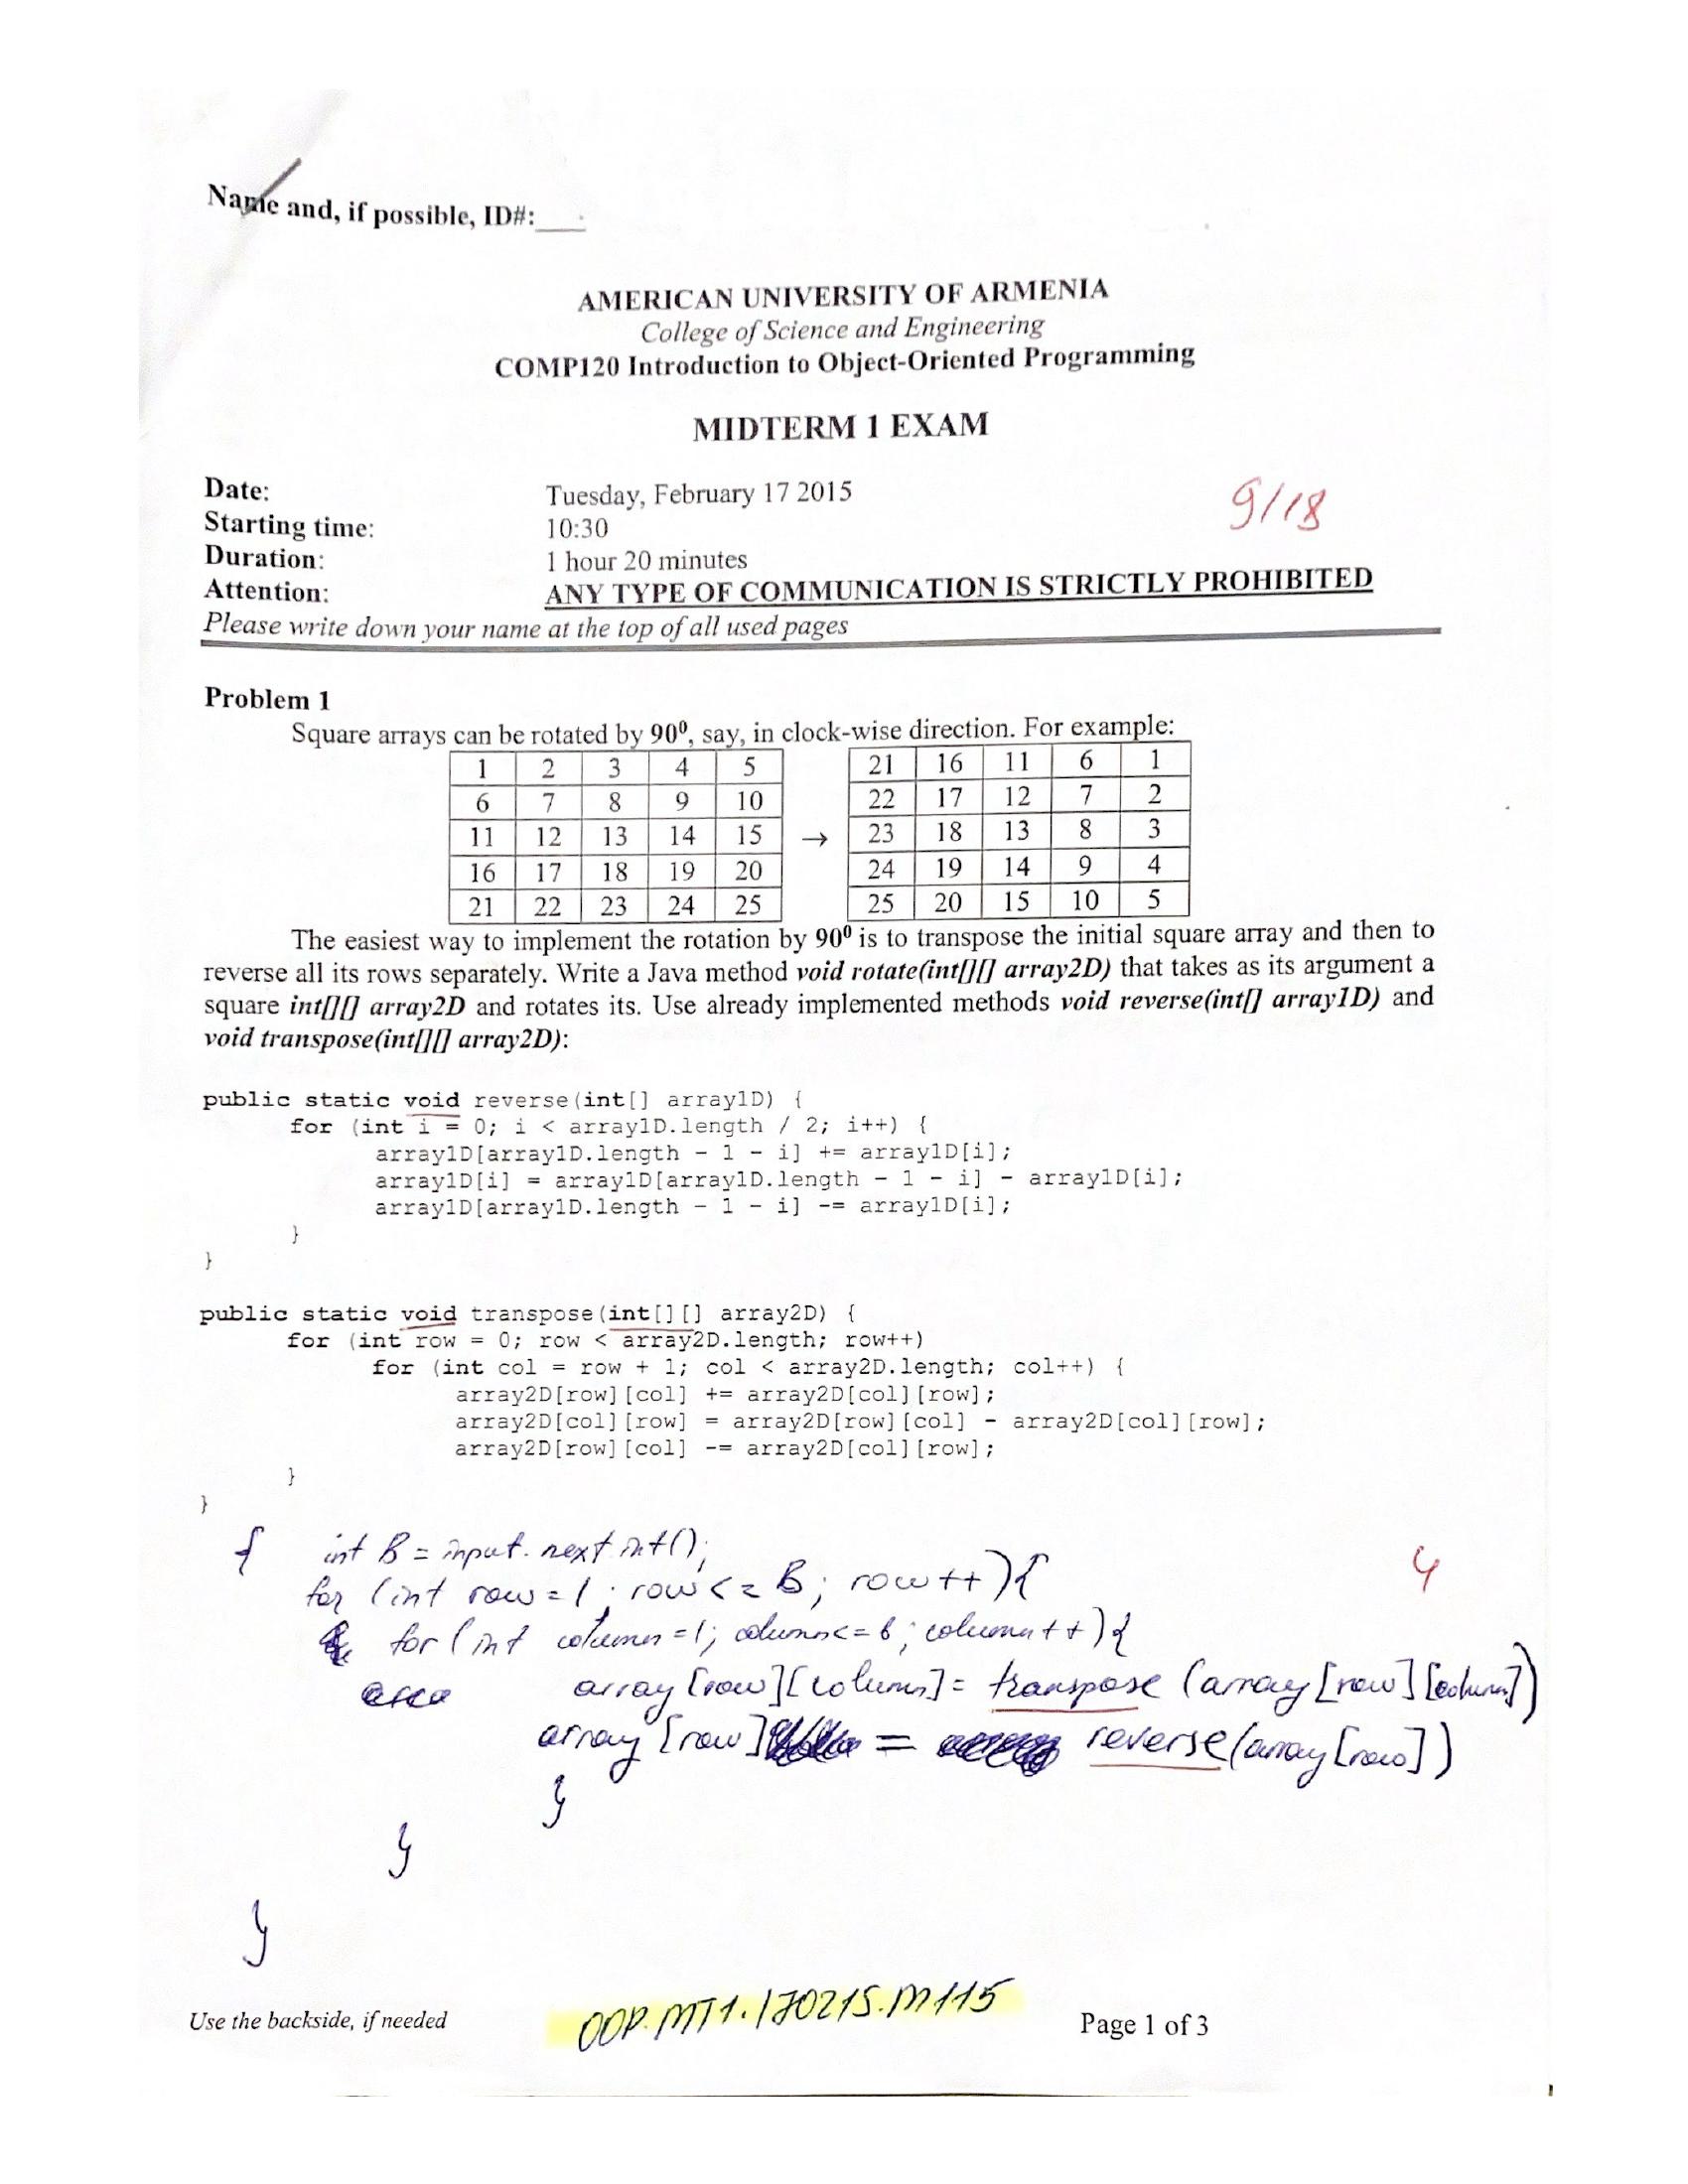 Name and, if possible, ID#:
AMERICAN UNIVERSITY OF ARMENIA
College of Science and Engineering
COMP120 Introduction to Object-Oriented Programming
MIDTERM 1 EXAM
Date: Tuesday, February 17 2015
9/18
Starting time: 10:30
Duration: 1 hour 20 minutes
Attention: ANY TYPE OF COMMUNICATION IS STRICTLY PROHIBITED
Please write down your name at the top of all used pages
Problem 1
Square arrays can be rotated by 90⁰, say, in clock-wise direction. For example:
1 2 3 4 5 21 16 11 6 1
6 7 8 9 10 22 17 12 7 2
11 12 13 14 15 → 23 18 13 8 3
16 17 18 19 20 24 19 14 9 4
21 22 23 24 25 25 20 15 10 5
The easiest way to implement the rotation by 90⁰ is to transpose the initial square array and then to
reverse all its rows separately. Write a Java method void rotate(int[][] array2D) that takes as its argument a
square int[][] array2D and rotates its. Use already implemented methods void reverse(int[] array1D) and
void transpose(int[][] array2D):
public static void reverse(int[] array1D) {
for (int i = 0; i < array1D.length / 2; i++) {
array1D[array1D.length - 1 - i] += array1D[i];
array1D[i] = array1D[array1D.length - 1 - i] - array1D[i];
array1D[array1D.length - 1 - i] -= array1D[i];
}
}
public static void transpose(int[][] array2D) {
for (int row = 0; row < array2D.length; row++)
for (int col = row + 1; col < array2D.length; col++) {
array2D[row][col] += array2D[col][row];
array2D[col][row] = array2D[row][col] - array2D[col][row];
array2D[row][col] -= array2D[col][row];
}
}
{ int B = input.next int();
4
for (int row = 1; row <= B; row++){
for (int column = 1; column <= B; column++){
array[row][column] = transpose (array[row][column])
array[row] = reverse(array[row])
}
}
}
Use the backside, if needed
OOP.MT1.170215.M115
Page 1 of 3